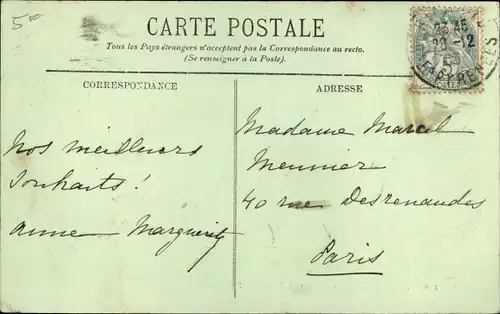 5 F
CARTE POSTALE
Tous les Pays étrangers n'acceptent pas la Correspondance au recto.
(Se renseigner à la Poste).
CORRESPONDANCE
ADRESSE
Nos meilleurs
Souhaits!
Anne Marguerite
Madame Marcel
Meunier
40 rue Desrenaudes
Paris
28 -12
PYRENEES